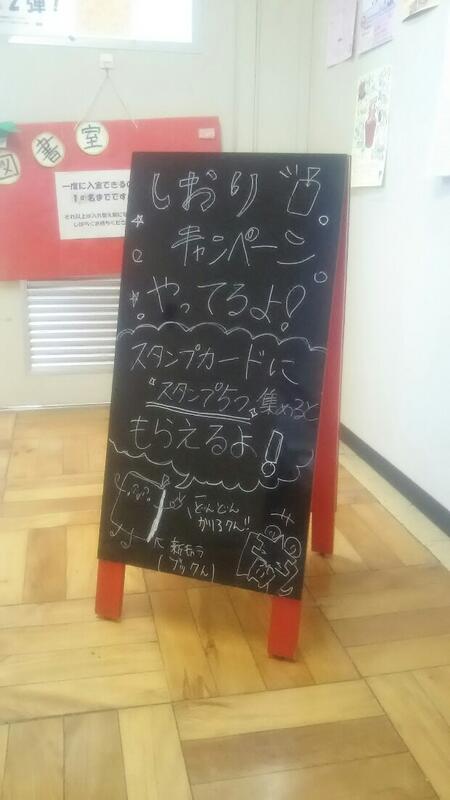 2弾!
図書室
一度に入室できるの
1名までです
しおり
キャンペーン
やってるよ!
スタンプカードに
"スタンプ5つ"集めると
もらえるよ!
どんどん
かりるクん!!
(ブックん)